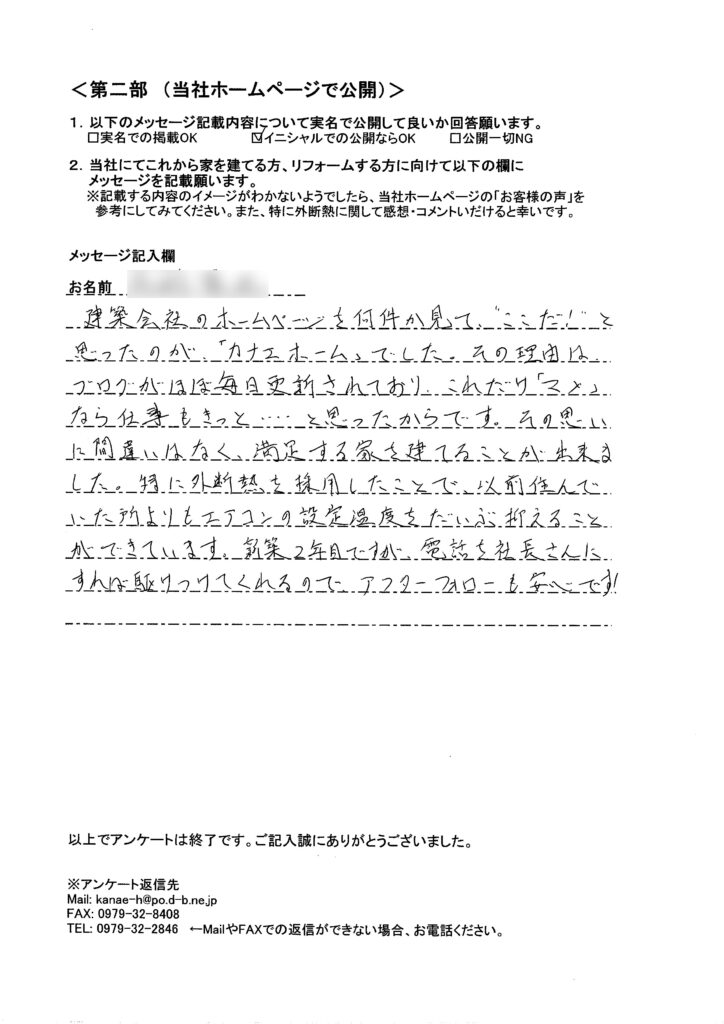 ＜第二部 （当社ホームページで公開）＞
１．以下のメッセージ記載内容について実名で公開して良いか回答願います。
□実名での掲載OK ☑イニシャルでの公開ならOK □公開一切NG
２．当社にてこれから家を建てる方、リフォームする方に向けて以下の欄に
メッセージを記載願います。
※記載する内容のイメージがわかないようでしたら、当社ホームページの「お客様の声」を
参考にしてみてください。また、特に外断熱に関して感想・コメントいただけると幸いです。
メッセージ記入欄
お名前
建築会社のホームページを何件か見て、"ここだ!"と
思ったのが、「カナエホーム」でした。その理由は、
ブログがほぼ毎日更新されており、これだけ「マメ」
なら仕事もきっと‥‥と思ったからです。その思い
に間違いはなく、満足する家を建てることが出来ま
した。特に外断熱を採用したことで、以前住んで
いた所よりもエアコンの設定温度をだいぶ抑えること
ができています。新築2年目ですが、電話を社長さんに
すれば駆けつけてくれるので、アフターフォローも安心です!
以上でアンケートは終了です。ご記入誠にありがとうございました。
※アンケート返信先
Mail: kanae-h@po.d-b.ne.jp
FAX: 0979-32-8408
TEL: 0979-32-2846 ←MailやFAXでの返信ができない場合、お電話ください。